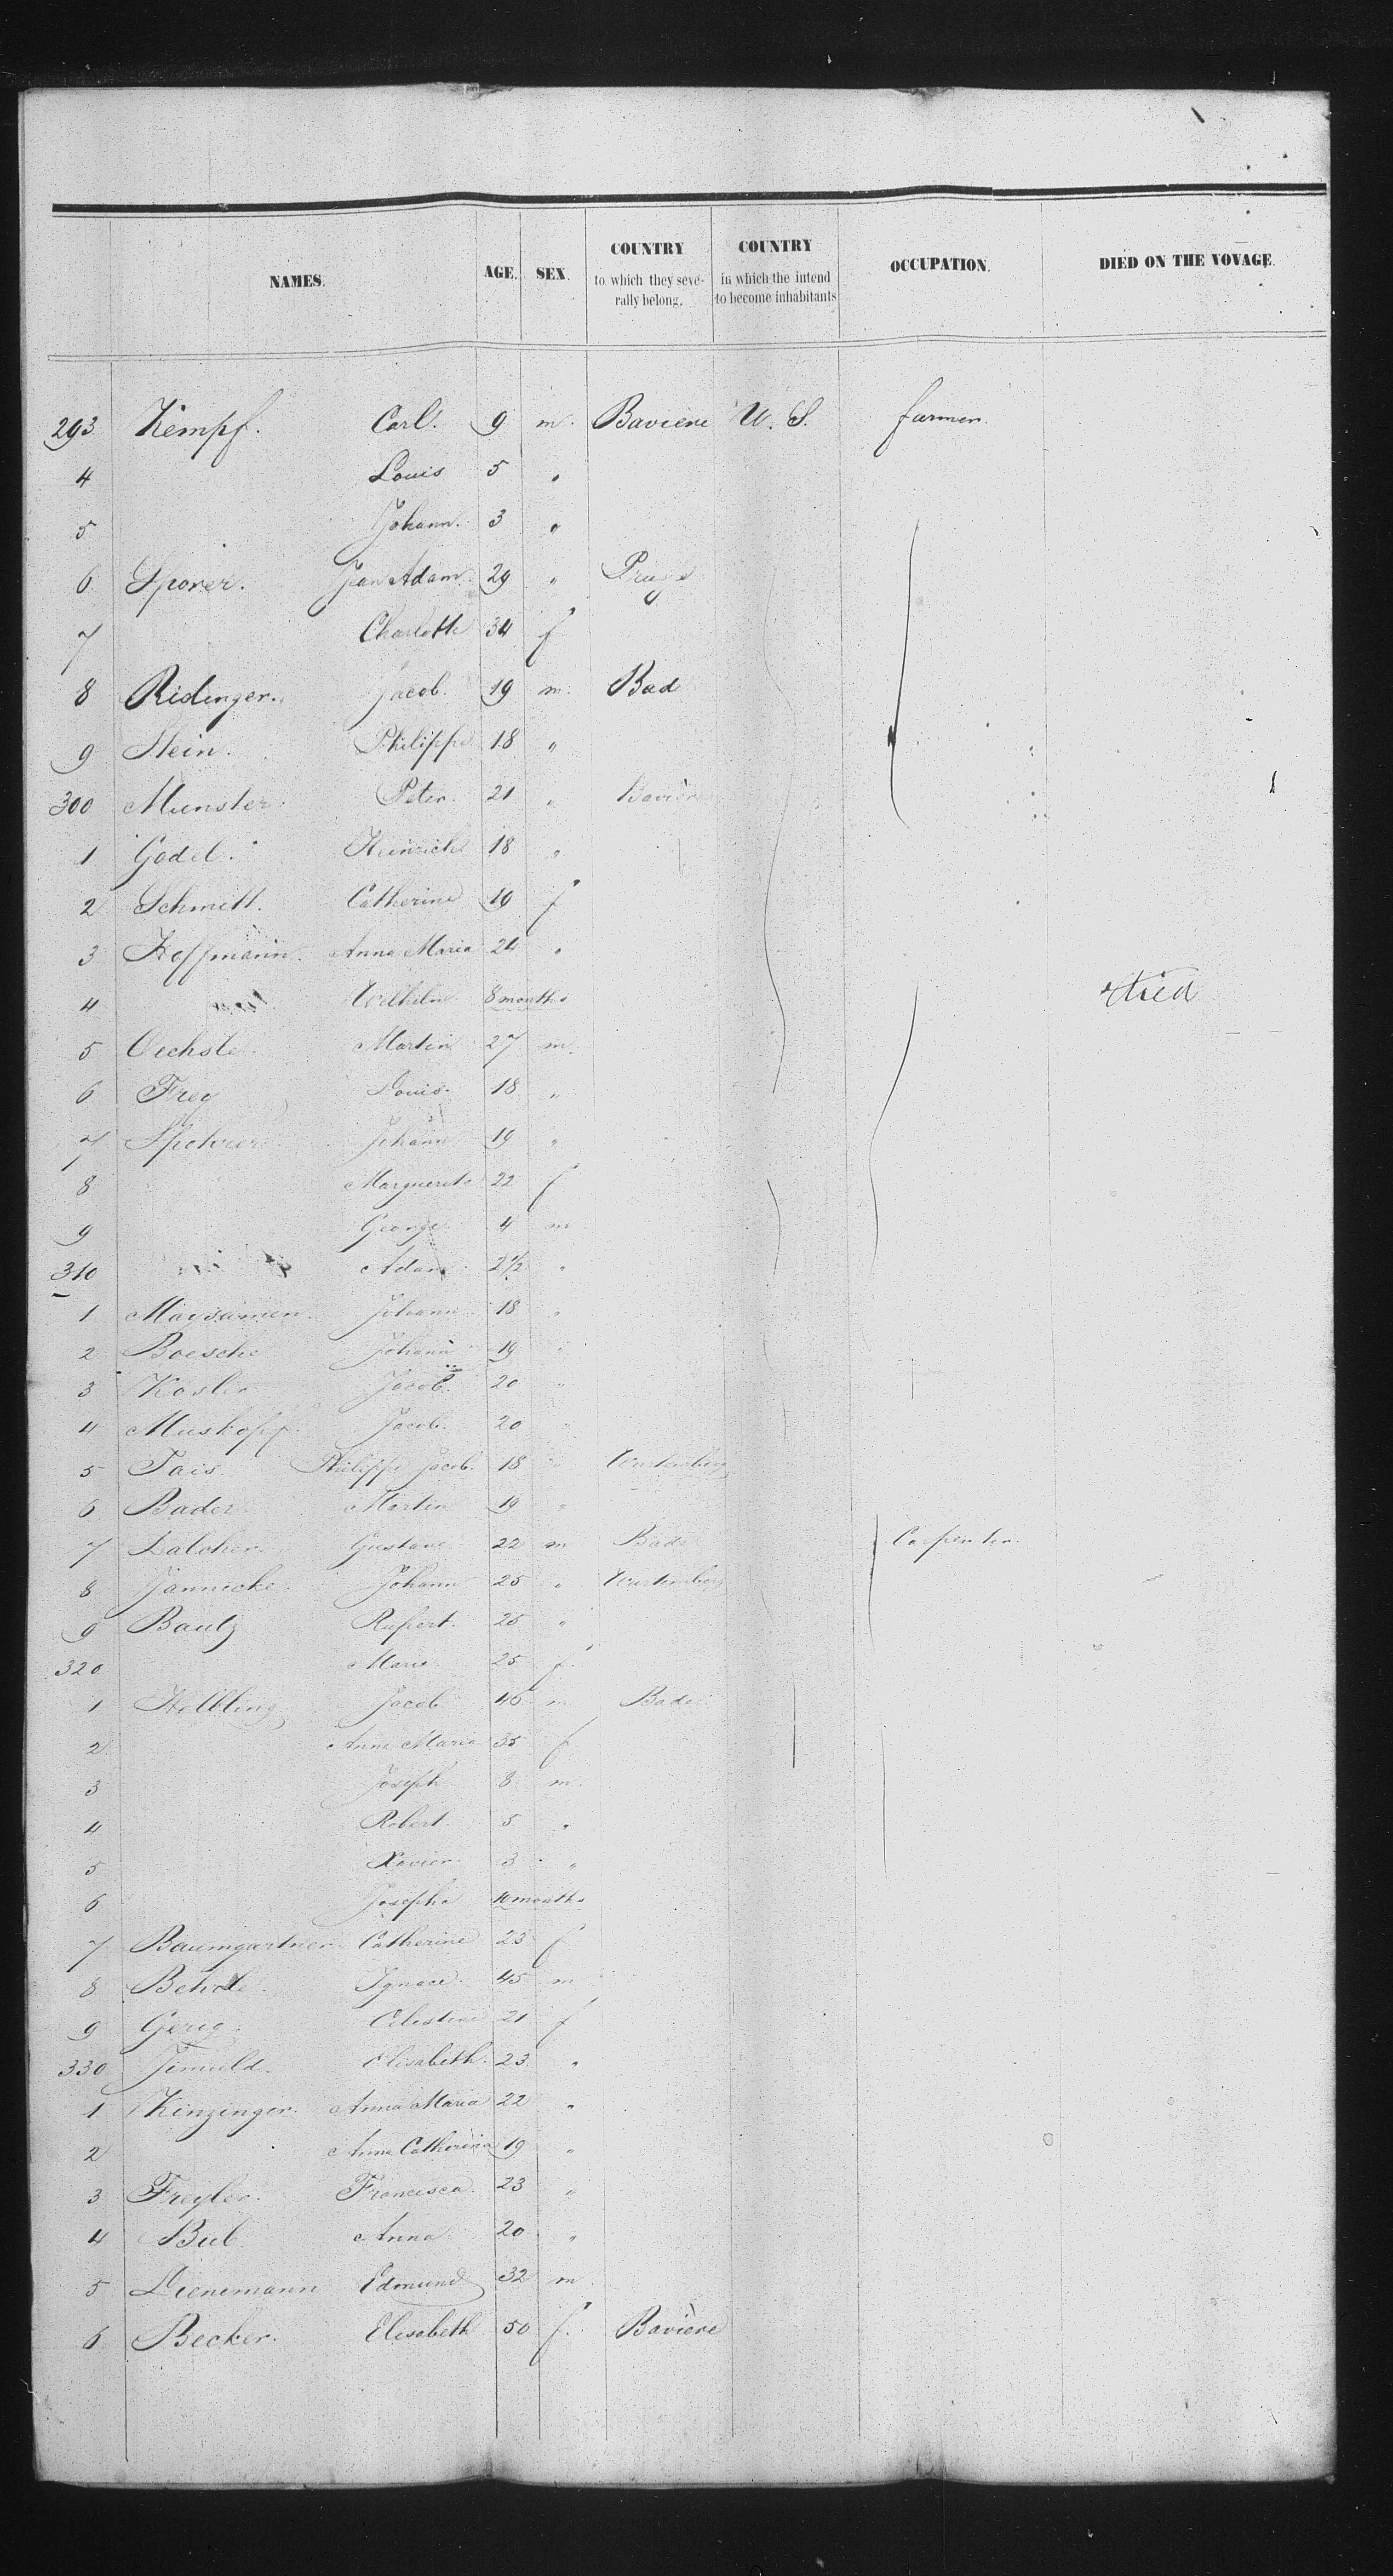 NAMES. AGE. SEX. COUNTRY to which they seve- rally belong. COUNTRY in which the intend to become inhabitants OCCUPATION. DIED ON THE VOYAGE.
293 Kempf. Carl. 9 m. Baviere U. S. farmer.
4 Louis 5 "
5 Johann. 3 "
6 Sporer. Jean Adam 29 "
7 Charlotte 34 f
8 Ridinger. Jacob. 19 m. Bad
9 Stein. Philippe 18 "
300 Munster Peter. 21 " Bavière
1 Godel. Heinrich 18 "
2 Schmitt. Catherine 19 f
3 Hoffmann. Anna Maria 24 "
4 Wilhelm 8 months died
5 Oechsle Martin 27 m.
6 Frey Louis. 18 "
7 Johann 19 "
8 Marguerite 22 f
9 George 4 m
310 Adam 2½ "
1 Johann 18 "
2 Boesche Johann 19 "
3 Jacob. 20 "
4 Muskopf Jacob. 20 "
5 Philippe Jacob. 18 " Wurtemberg
6 Bader Martin 19 "
7 Gustave 22 m Bade Carpenter.
8 Jannicke Johann 25 " Wurtemberg
9 Bautz Rupert. 26 "
320 Marie 25 f
1 Helbling Jacob 46 m Bade
2 Anna Maria 35 f
3 Joseph 8 m.
4 Robert. 5 "
5 Xavier 3 "
6 Josepha 10 months
7 Baumgartner Catherine 23 f
8 Ignace. 45 m
9 Gerig Celestine 21 f
330 Elisabeth. 23 "
1 Kinzinger. Anna Maria 22 "
2 Anna Catherina 19 "
3 Freyler. Francisca. 23 "
4 Bub Anna 20 "
5 Lienemann Edmund 32 m
6 Becker. Elisabeth 50 f. Bavière